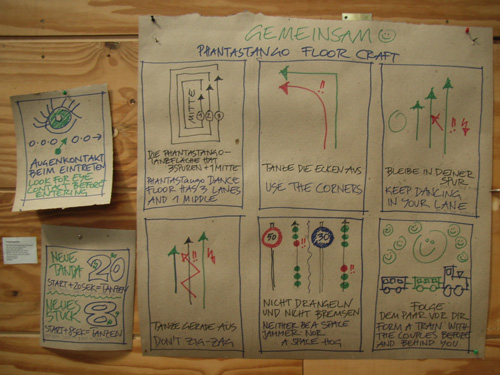 GEMEINSAM
PHANTASTANGO FLOOR CRAFT
MITTE
1 2 3
DIE PHANTASTANGO-
TANZFLÄCHE HAT
3 SPUREN + 1 MITTE
PHANTASTANGO DANCE
FLOOR HAS 3 LANES
AND 1 MIDDLE
!!
TANZE DIE ECKEN AUS
USE THE CORNERS
!!
BLEIBE IN DEINER
SPUR
KEEP DANCING
IN YOUR LANE
!!
TANZE GERADE AUS
DON'T ZIG-ZAG
50
!!
30
!!
NICHT DRÄNGELN
UND NICHT BREMSEN
NEITHER BE A SPACE
JAMMER NOR
A SPACE HOG
FOLGE
DEM PAAR VOR DIR
FORM A TRAIN WITH
THE COUPLES BEFORE
AND BEHIND YOU
AUGENKONTAKT
BEIM EINTRETEN
LOOK FOR EYE
CONTACT BEFORE
ENTERING
NEUE
TANDA
20
START + 20SEK = TANZEN
NEUES
STÜCK
8
START + 8SEK = TANZEN